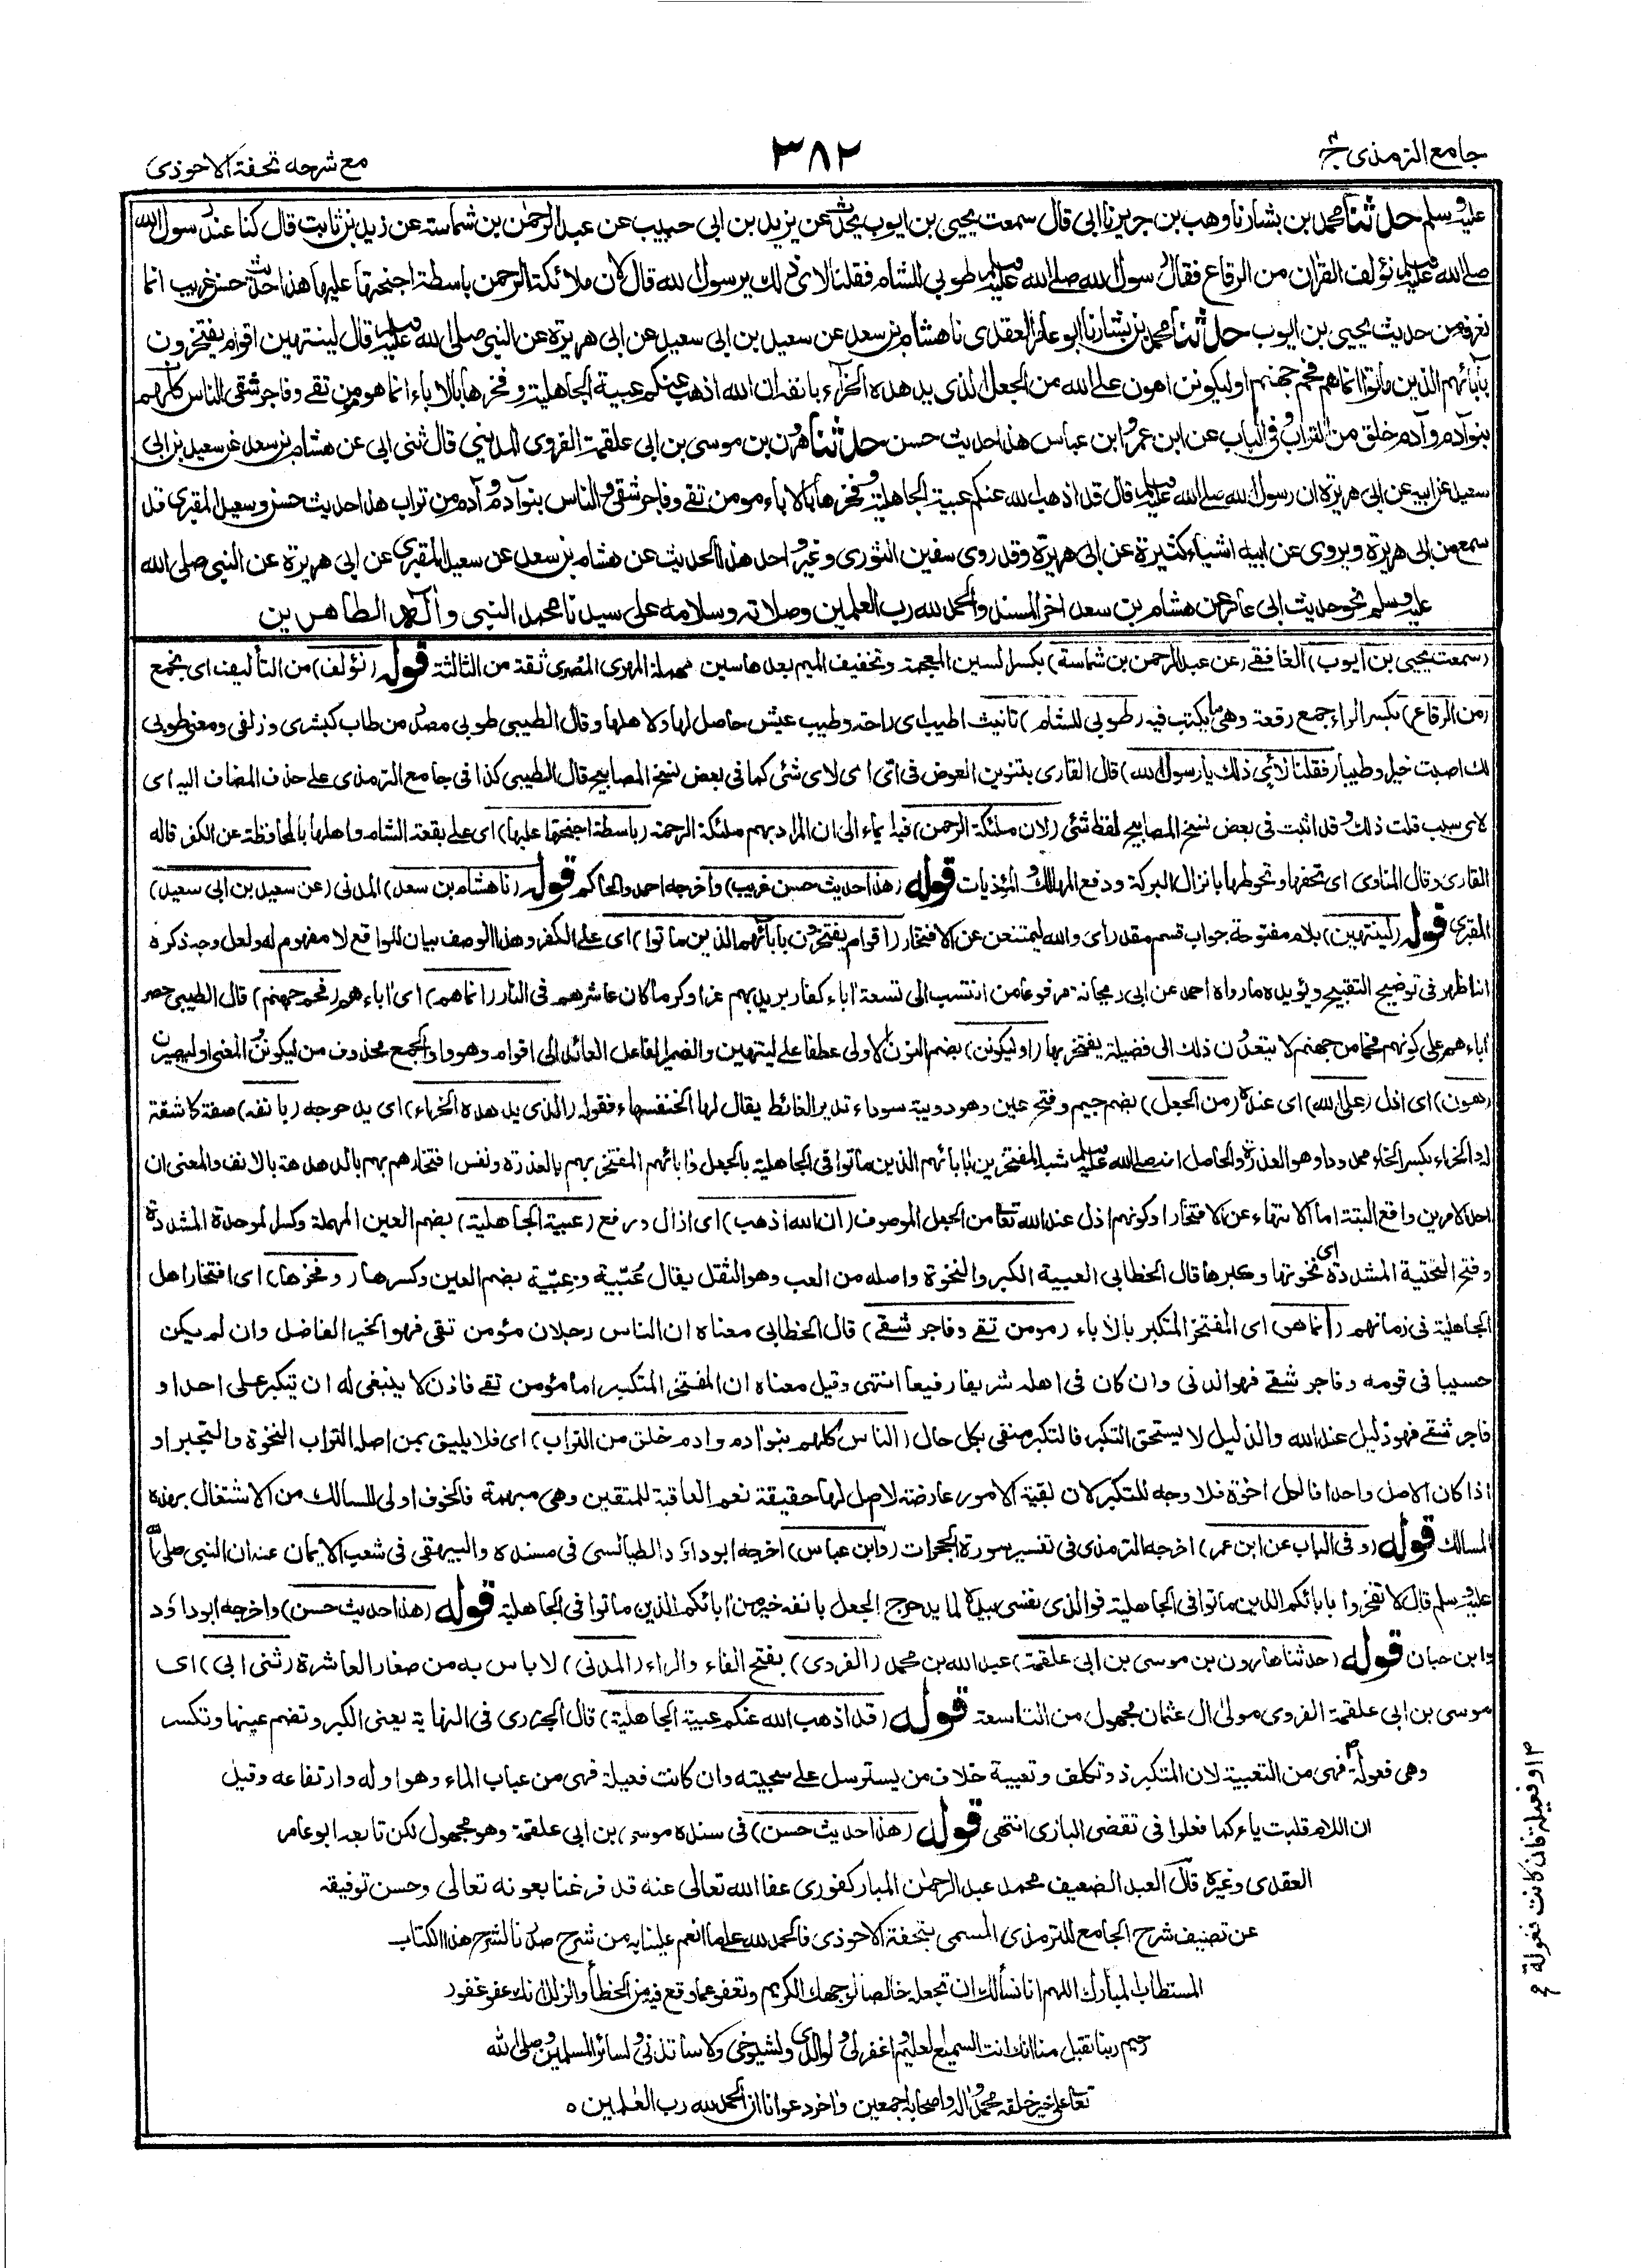 جامع الترمذي ج ٤
٣٨٢
مع شرحه تحفة الاحوذي
عليه وسلم حدثنا محمد بن بشار نا وهب بن جرير نا ابي قال سمعت يحيى بن ايوب يحدث عن يزيد بن ابي حبيب عن عبد الرحمن بن شماسة عن زيد بن ثابت قال كنا عند رسول الله
صلى الله عليه وسلم نؤلف القران من الرقاع فقال رسول الله صلى الله عليه وسلم طوبى للشام فقلنا لاى ذلك يا رسول الله قال لان ملائكة الرحمن باسطة اجنحتها عليها هذا حديث حسن غريب انما
نعرفه من حديث يحيى بن ايوب حدثنا محمد بن بشار نا ابو عامر العقدى نا هشام بن سعد عن سعيد بن ابى سعيد عن ابى هريرة عن النبي صلى الله عليه وسلم قال لينتهين اقوام يفتخرون
بآبائهم الذين ماتوا انما هم فحم جهنم او ليكونن اهون على الله من الجعل الذى يدهده الخرآء بانفه ان الله اذهب عنكم عبية الجاهلية وفخرها بالاباء انما هو مومن تقى وفاجر شقى الناس كلهم
بنو آدم وآدم خلق من التراب وفى الباب عن ابن عمر وابن عباس هذا حديث حسن حدثنا هرون بن موسى بن ابى علقمة الفروى المدينى قال ثنى ابى عن هشام بن سعد عن سعيد بن ابى
سعيد عن ابيه عن ابى هريرة ان رسول الله صلى الله عليه وسلم قال قد اذهب الله عنكم عبية الجاهلية وفخرها بالاباء مومن تقى وفاجر شقى والناس بنو آدم وآدم من تراب هذا حديث حسن وسعيد المقبرى قد
سمع من ابى هريرة ويروى عن ابيه اشياء كثيرة عن ابى هريرة وقد روى سفين الثورى وغير واحد هذا الحديث عن هشام بن سعد عن سعيد المقبرى عن ابى هريرة عن النبي صلى الله
عليه وسلم نحو حديث ابى عامر عن هشام بن سعد اخر المسند والحمد لله رب العلمين وصلاته وسلامه على سيدنا محمد النبى واله الطاهرين
(سمعت يحيى بن ايوب) الغافقى (عن عبد الرحمن بن شماسة) بكسر السين المعجمة وتخفيف الميم بعدها سين مهملة المهرى المصرى ثقة من الثالثة قوله (نؤلف) من التأليف اى نجمع
(من الرقاع) بكسر الراء جمع رقعة وهى ما يكتب فيه (طوبى للشام) تانيث اطيب اى راحة وطيب عيش حاصل لها ولاهلها وقال الطيبى طوبى مصدر من طاب كبشرى وزلفى ومعنى طوبى
لك اصبت خيرا وطيبا (فقلنا لأي ذلك يا رسول الله) قال القارى بتنوين العوض فى أى اى لاى شئى كما فى بعض نسخ المصابيح قال الطيبى كذا فى جامع الترمذى على حذف المضاف اليه اى
لاى سبب قلت ذلك وقد اثبت فى بعض نسخ المصابيح لفظ شئى (لان ملئكة الرحمن) فيه ايماء الى ان المراد بهم ملئكة الرحمة (باسطة اجنحتها عليها) اى على بقعة الشام واهلها بالمحافظة عن الكفر قاله
القارى وقال المناوى اى تحفها وتحوطها بانزال البركة ودفع المهالك والمؤذيات قوله (هذا حديث حسن غريب) واخرجه احمد والحاكم قوله (نا هشام بن سعد) المدنى (عن سعيد بن ابى سعيد)
المقبرى قوله (لينتهين) بلام مفتوحة جواب قسم مقدر اى والله ليمتنعن عن الافتخار (اقوام يفتخرون بآبائهم الذين ماتوا) اى على الكفر وهذا الوصف بيان للواقع لا مفهوم له ولعل وجه ذكره
انه اظهر فى توضيح التقبيح ويؤيده ما رواه احمد عن ابى ريحانة مرفوعا من انتسب الى تسعة اباء كفار يريد بهم عزا وكرما كان عاشرهم فى النار (انما هم) اى اباءهم (فحم جهنم) قال الطيبى حصر
اباءهم على كونهم فحما من جهنم لا يتعدون ذلك الى فضيلة يفتخر بها (او ليكونن) بضم النون الاولى عطفا على لينتهين والضمير الفاعل العائد الى اقوام وهو واو الجمع محذوف من ليكونن والمعنى او ليصيرن
(اهون) اى اذل (على الله) اى عنده (من الجعل) بضم جيم وفتح عين وهو دويبة سوداء تدير الغائط يقال لها الخنفساء فقوله (الذى يدهده الخراء) اى يدحرجه (بانفه) صفة كاشفة
له والخراء بكسر الخاء ممدودا وهو العذرة والحاصل انه صلى الله عليه وسلم شبه المفتخرين بابائهم الذين ماتوا فى الجاهلية بالجعل وابائهم المفتخر بهم بالعذرة ونفس افتخارهم بهم بالدهدهة بالانف والمعنى ان
احد الامرين واقع البتة اما الانتهاء عن الافتخار او كونهم اذل عند الله تعالى من الجعل الموصوف (ان الله اذهب) اى ازال ورفع (عبية الجاهلية) بضم العين المهملة وكسر الموحدة المشددة
وفتح التحتية المشددة اى نخوتها وكبرها قال الخطابى العبية الكبر والنخوة واصله من العب وهو الثقل يقال عُبّية وعِبّية بضم العين وكسرها (وفخرها) اى افتخار اهل
الجاهلية فى زمانهم (انما هو) اى المفتخر المتكبر بالاباء (مومن تقى وفاجر شقى) قال الخطابى معناه ان الناس رجلان مؤمن تقى فهو الخير الفاضل وان لم يكن
حسيبا فى قومه وفاجر شقى فهو الدنى وان كان فى اهله شريفا رفيعا انتهى وقيل معناه ان المفتخر المتكبر اما مؤمن تقى فاذن لا ينبغى له ان يتكبر على احد او
فاجر شقى فهو ذليل عند الله والذليل لا يستحق التكبر فالتكبر منفى بكل حال (الناس كلهم بنو ادم وادم خلق من التراب) اى فلا يليق بمن اصله التراب النخوة والتجبر او
اذا كان الاصل واحدا فالكل اخوة فلا وجه للتكبر لان بقية الامور عارضة لا اصل لها حقيقة نعم العاقبة للمتقين وهى مبهمة فالخوف اولى للسالك من الاشتغال بهذه
المسالك قوله (وفى الباب عن ابن عمر) اخرجه الترمذى فى تفسير سورة الحجرات (وابن عباس) اخرجه ابو داؤد الطيالسى فى مسنده والبيهقى فى شعب الايمان عنه ان النبى صلى الله
عليه وسلم قال لا تفخروا بابائكم الذين ماتوا فى الجاهلية فوالذى نفسى بيده لما يدحرج الجعل بانفه خير من ابائكم الذين ماتوا فى الجاهلية قوله (هذا حديث حسن) واخرجه ابو داؤد
وابن حبان قوله (حدثنا هارون بن موسى بن ابى علقمة) عبد الله بن محمد (الفروى) بفتح الفاء والراء (المدنى) لا باس به من صغار العاشرة (ثنى ابى) اى
موسى بن ابى علقمة الفروى مولى ال عثمان مجهول من التاسعة قوله (قد اذهب الله عنكم عبية الجاهلية) قال الجزرى فى النهاية يعنى الكبر وتضم عينها وتكسر
وهى فعولة م فهى من التعبية لان المتكبر ذو تكلف وتعبية خلاف من يسترسل على سجيته وان كانت فعيلة فهى من عباب الماء وهو اوله وارتفاعه وقيل
ان اللام قلبت ياء كما فعلوا فى تقضى البازى انتهى قوله (هذا حديث حسن) فى سنده موسى بن ابى علقمة وهو مجهول لكن تابعه ابو عامر
العقدى وغيره قال العبد الضعيف محمد عبد الرحمن المباركفورى عفا الله تعالى عنه قد فرغنا بعونه تعالى وحسن توفيقه
عن تصنيف شرح الجامع للترمذى المسمى بتحفة الاحوذى فالحمد لله على ما انعم علينا به من شرح صدرنا لشرح هذا الكتاب
المستطاب المبارك اللهم انا نسألك ان تجعله خالصا لوجهك الكريم وتعفو عما وقع فيه من الخطأ والزلل انك عفو غفور
رحيم ربنا تقبل منا انك انت السميع العليم واغفر لى ولوالدى ولشيوخى ولاساتذتى ولسائر المسلمين وصلى الله
تعالى على خير خلقه محمد واله واصحابه اجمعين واخر دعوانا ان الحمد لله رب العلمين ه
م او فعيلة فان كانت فعولة